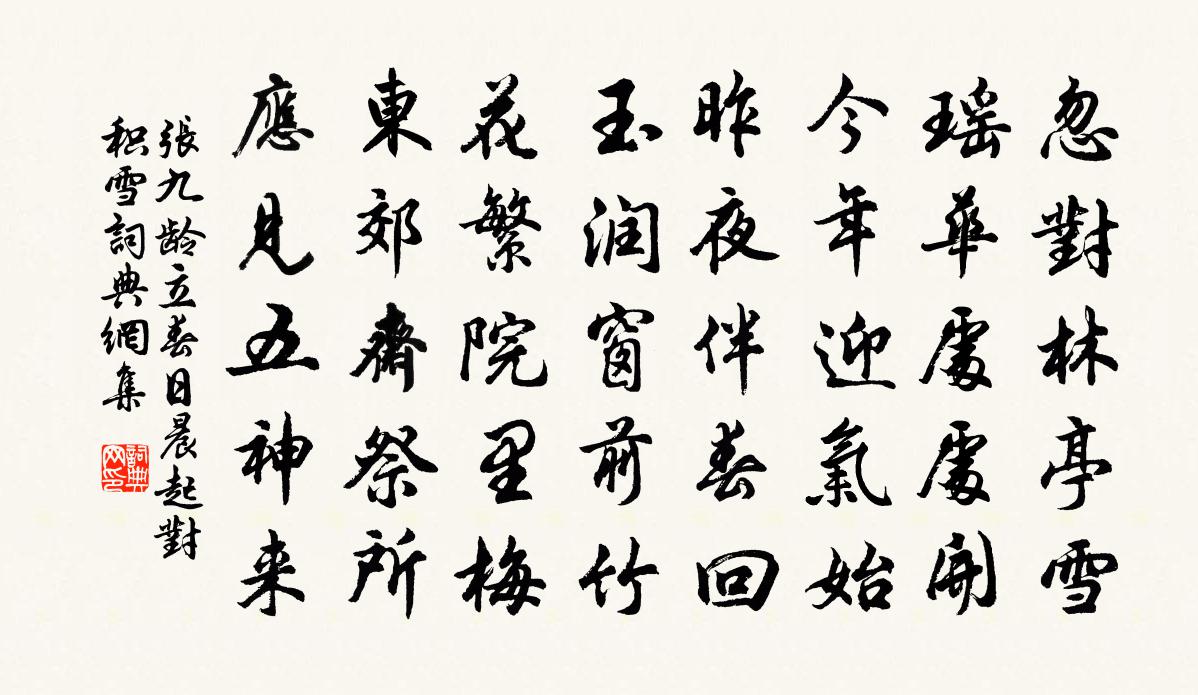 忽對林亭雪
瑶華處處開
今年迎氣始
昨夜伴春回
玉润窗前竹
花繁院里梅
東郊齋祭所
應見五神来
張九龄立春日晨起對
积雪詞典網集
詞典网印